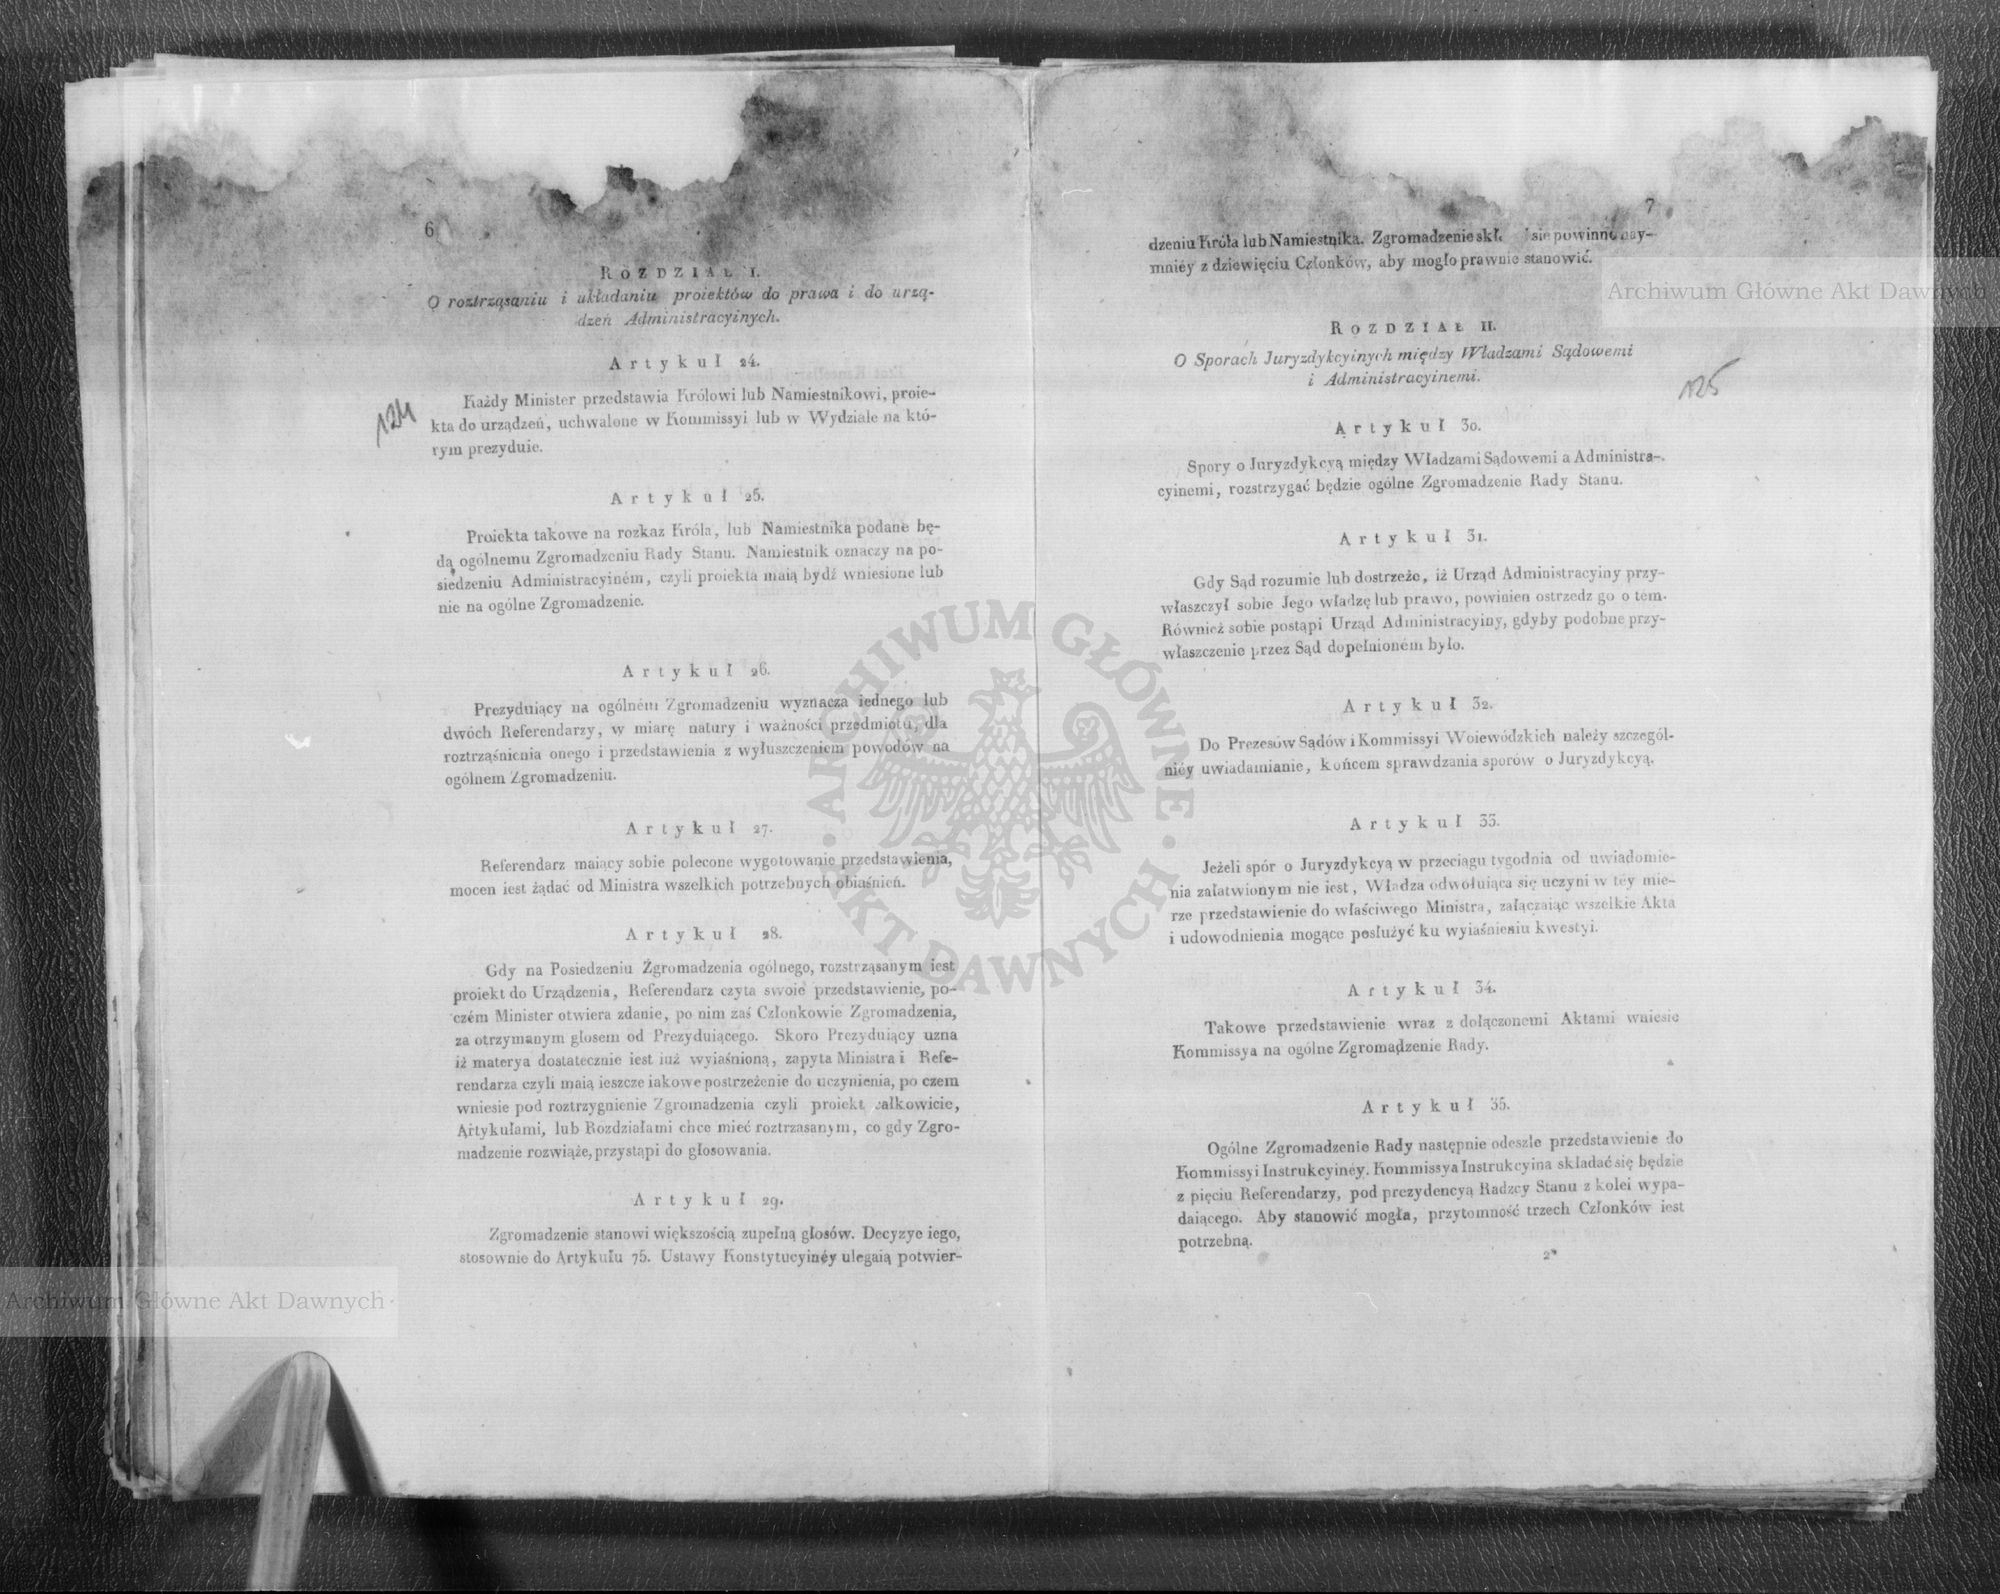 6
ROZDZIAŁ I.
O roztrząsaniu i układaniu proiektów do prawa i do urzą-
dzeń Administracyinych.
Artykuł 24.
Każdy Minister przedstawia Królowi lub Namiestnikowi, proie-
kta do urządzeń, uchwalone w Kommissyi lub w Wydziale na któ-
rym prezyduie.
124
Artykuł 25.
Proiekta takowe na rozkaz Króla, lub Namiestnika podane bę-
dą ogólnemu Zgromadzeniu Rady Stanu. Namiestnik oznaczy na po-
siedzeniu Administracyiném, czyli proiekta maią bydź wniesione lub
nie na ogólne Zgromadzenie.
Artykuł 26.
Prezyduiący na ogólném Zgromadzeniu wyznacza iednego lub
dwóch Referendarzy, w miarę natury i ważności przedmiotu, dla
roztrząśnienia onego i przedstawienia z wyłuszczeniem powodów na
ogólnem Zgromadzeniu.
Artykuł 27.
Referendarz maiący sobie polecone wygotowanie przedstawienia,
mocen iest żądać od Ministra wszelkich potrzebnych obiaśnień.
Artykuł 28.
Gdy na Posiedzeniu Zgromadzenia ogólnego, rozstrząsanym iest
proiekt do Urządzenia, Referendarz czyta swoie przedstawienie, po-
czém Minister otwiera zdanie, po nim zaś Członkowie Zgromadzenia,
za otrzymanym głosem od Prezyduiącego. Skoro Prezyduiący uzna
iż materya dostatecznie iest iuż wyiaśnioną, zapyta Ministra i Refe-
rendarza czyli maią ieszcze iakowe postrzeżenie do uczynienia, po czem
wniesie pod roztrzygnienie Zgromadzenia czyli proiekt całkowicie,
Artykułami, lub Rozdziałami chce mieć roztrzasanym, co gdy Zgro-
madzenie rozwiąże, przystąpi do głosowania.
Artykuł 29.
Zgromadzenie stanowi większością zupełną głosów. Decyzye iego,
stosownie do Artykułu 75. Ustawy Konstytucyinéy ulegaią potwier-
7
dzeniu Króla lub Namiestnika. Zgromadzenie skł się powinno nay-
mniéy z dziewięciu Członków, aby mogło prawnie stanowić.
ROZDZIAŁ II.
O Sporach Juryzdykcyinych między Władzami Sądowemi
i Administracyinemi.
125
Artykuł 30.
Spory o Juryzdykcyą między Władzami Sądowemi a Administra-
cyinemi, rozstrzygać będzie ogólne Zgromadzenie Rady Stanu.
Artykuł 31.
Gdy Sąd rozumie lub dostrzeże, iż Urząd Administracyiny przy-
właszczył sobie Jego władzę lub prawo, powinien ostrzedz go o tém.
Również sobie postąpi Urząd Administracyiny, gdyby podobne przy-
właszczenie przez Sąd dopełnioném było.
Artykuł 32.
Do Prezesów Sądów i Kommissyi Woiewódzkich należy szczegól-
niéy uwiadamianie, końcem sprawdzania sporów o Juryzdykcyą.
Artykuł 33.
Jeżeli spór o Juryzdykcyą w przeciągu tygodnia od uwiadomie-
nia załatwionym nie iest, Władza odwołuiąca się uczyni w téy mie-
rze przedstawienie do właściwego Ministra, załączaiąc wszelkie Akta
i udowodnienia mogące posłużyć ku wyiaśnieniu kwestyi.
Artykuł 34.
Takowe przedstawienie wraz z dołączonemi Aktami wniesie
Kommissya na ogólne Zgromadzenie Rady.
Artykuł 35.
Ogólne Zgromadzenie Rady następnie odeszle przedstawienie do
Kommissyi Instrukcyinéy. Kommissya Instrukcyina składać się będzie
z pięciu Referendarzy, pod prezydencyą Radzcy Stanu z kolei wypa-
daiącego. Aby stanowić mogła, przytomność trzech Członków iest
potrzebną.
2*
Archiwum Główne Akt Dawnych
Archiwum Główne Akt Dawnych
ARCHIWUM GŁÓWNE · AKT DAWNYCH ·